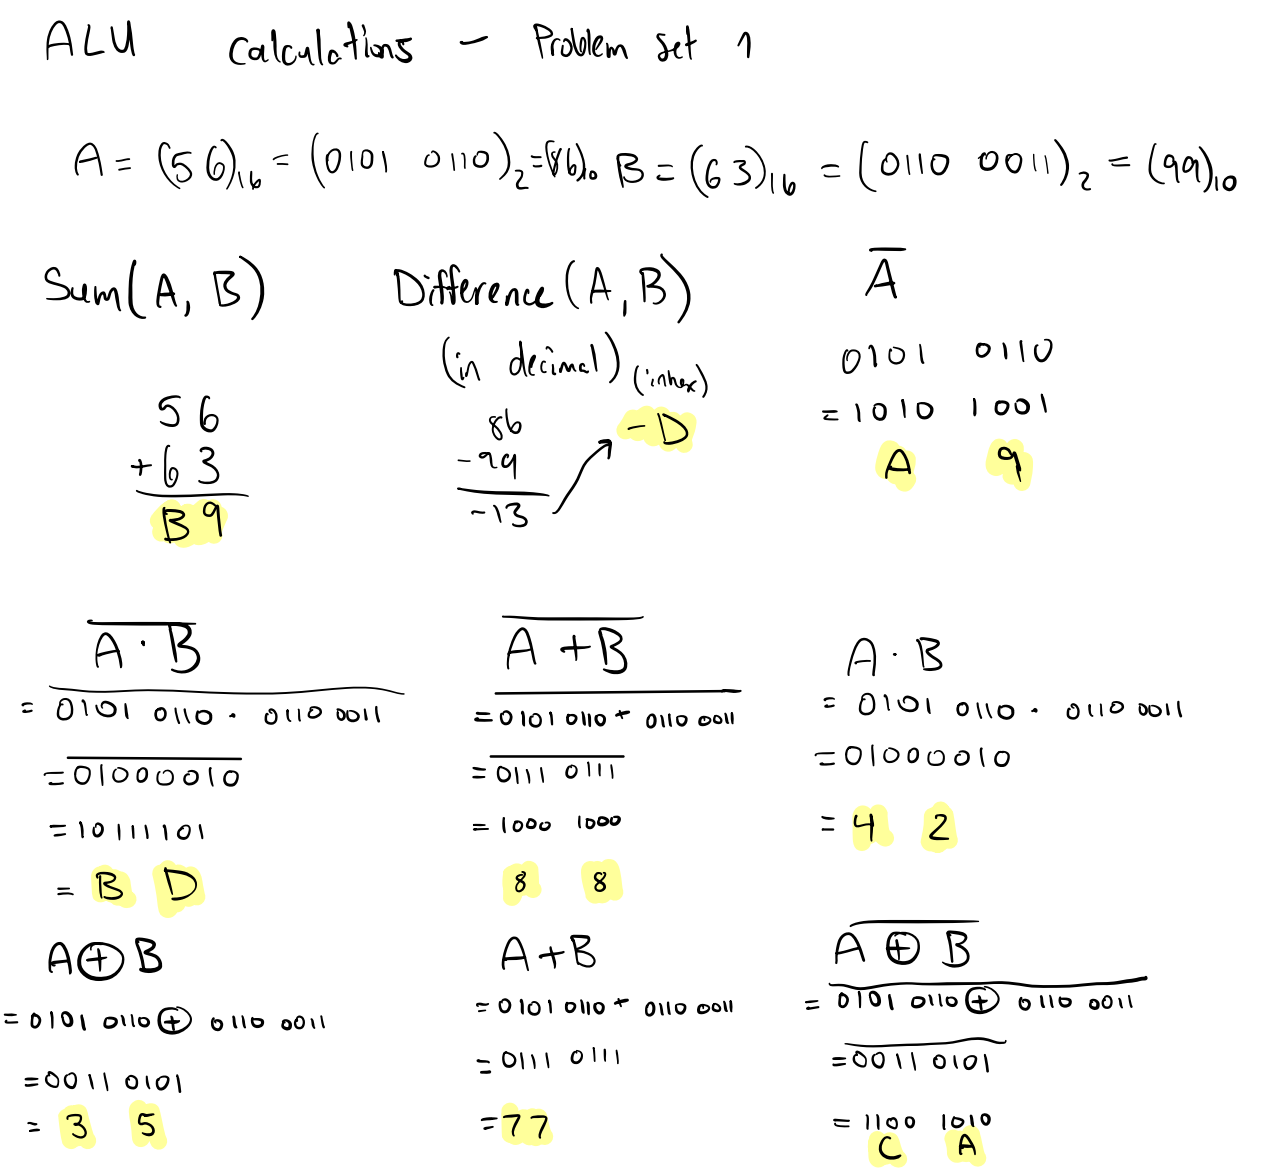 ALU Calculations - Problem Set 1
A = (56)₁₆ = (0101 0110)₂ = (86)₁₀ B = (63)₁₆ = (0110 0011)₂ = (99)₁₀
Sum(A, B)
56
+63
B9
Difference(A, B)
(in decimal) (in hex)
86
-99
-13
-D
A̅
0101 0110
= 1010 1001
A 9
A̅ ̅·̅ ̅B̅
= 0101 0110 · 0110 0011
= 01000010
= 10111101
= B D
A̅ ̅+̅ ̅B̅
= 0101 0110 + 0110 0011
= 0111 0111
= 1000 1000
8 8
A · B
= 0101 0110 · 0110 0011
= 01000010
= 4 2
A ⊕ B
= 0101 0110 ⊕ 0110 0011
= 0011 0101
= 3 5
A + B
= 0101 0110 + 0110 0011
= 0111 0111
= 77
A̅ ̅⊕̅ ̅B̅
= 0101 0110 ⊕ 0110 0011
= 0011 0101
= 1100 1010
C A